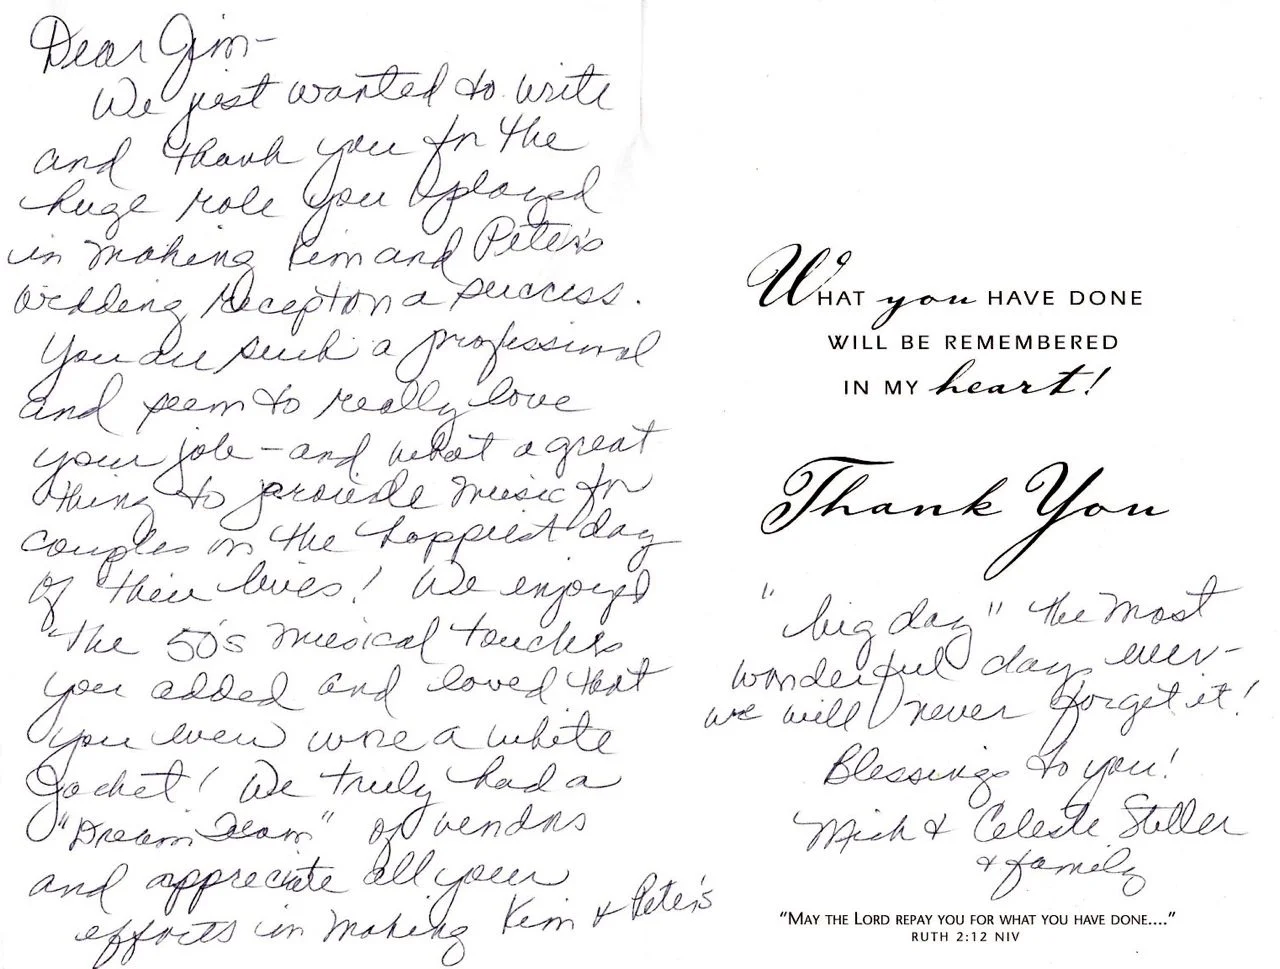 Dear Jim-
We just wanted to write
and thank you for the
huge role you played
in making Kim and Peter's
wedding reception a success.
You are such a professional
and seem to really love
your job - and what a great
thing to provide music for
couples on the happiest day
of their lives! We enjoyed
the 50's musical touches
you added and loved that
you even wore a white
Jacket! We truly had a
"Dream Team" of vendors
and appreciate all your
efforts in making Kim & Peter's
WHAT you HAVE DONE
WILL BE REMEMBERED
IN MY heart!
Thank You
"big day" the most
wonderful day ever-
we will never forget it!
Blessings to you!
Mick & Celeste Stoller
& family
"MAY THE LORD REPAY YOU FOR WHAT YOU HAVE DONE...."
RUTH 2:12 NIV